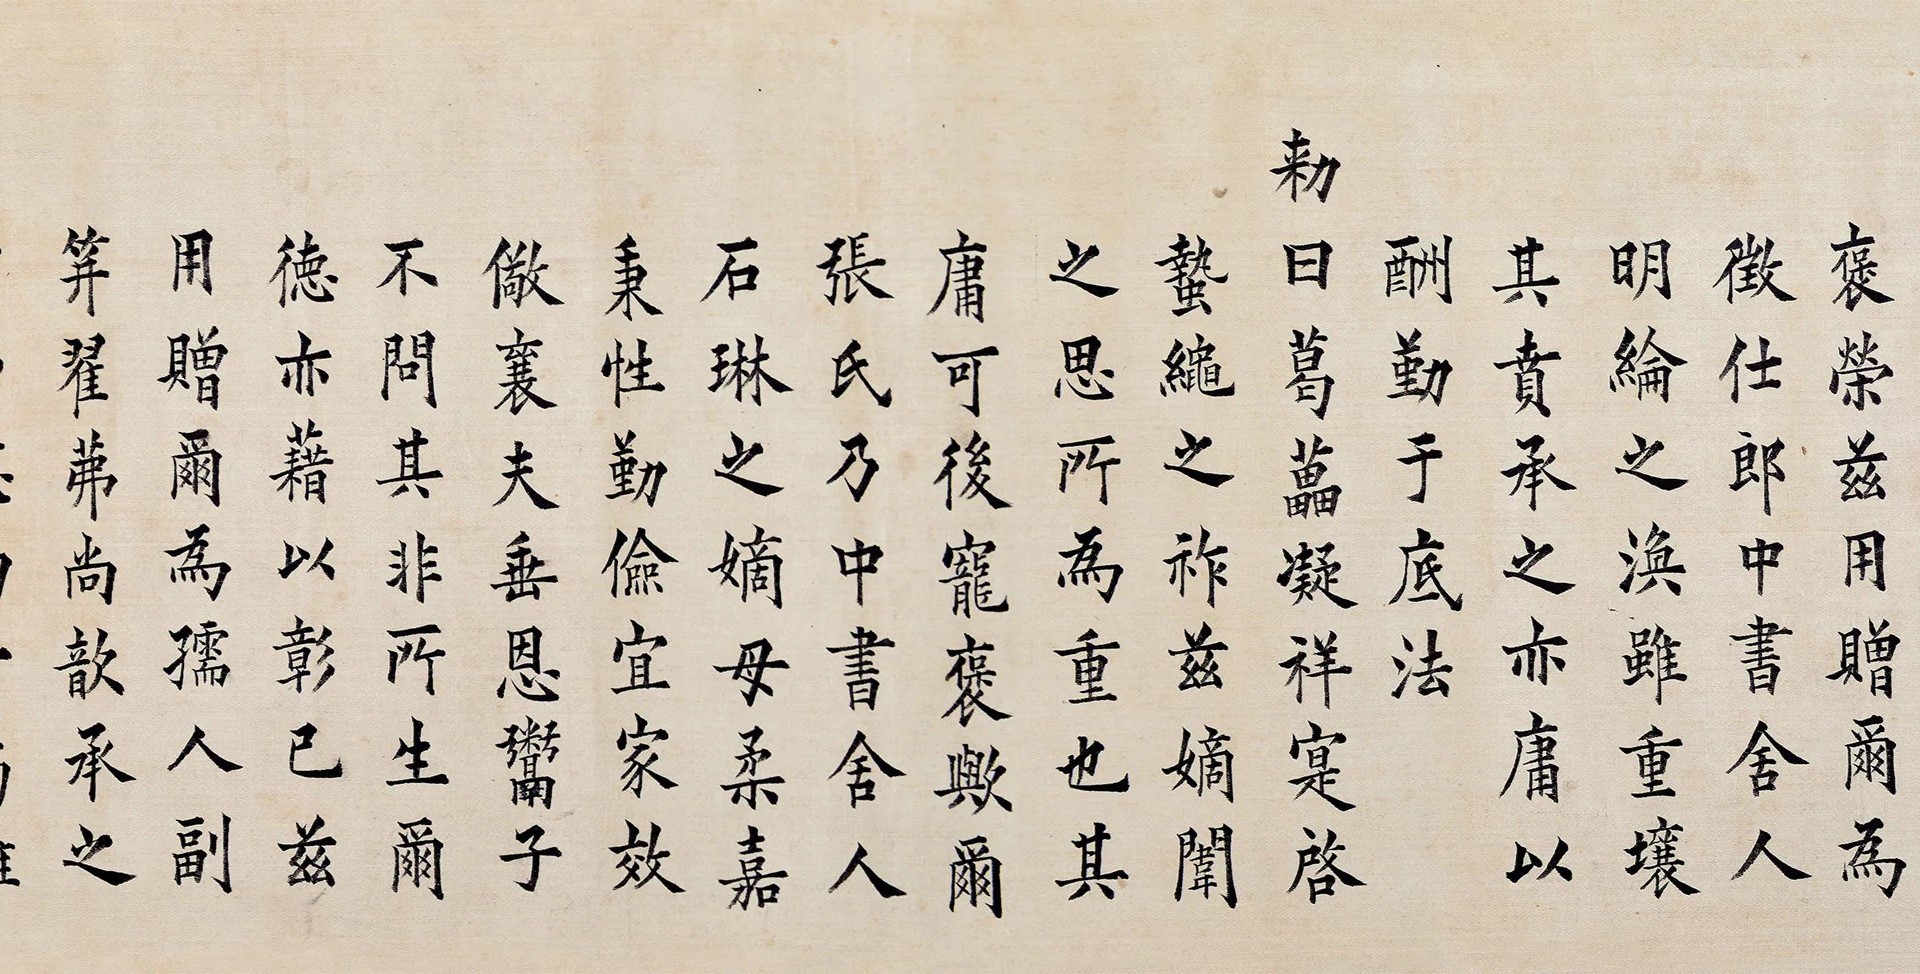 褒榮茲用贈爾為
徵仕郎中書舍人
明綸之渙雖重壤
其賁承之亦庸以
酬勤于底法
勑曰葛藟凝祥寔啓
蟄繩之祚茲嫡闈
之思所為重也其
庸可後寵褒歟爾
張氏乃中書舍人
石琳之嫡母柔嘉
秉性勤儉宜家效
儆襄夫垂恩鬻子
不問其非所生爾
德亦藉以彰已茲
用贈爾為孺人副
筓翟茀尚歆承之